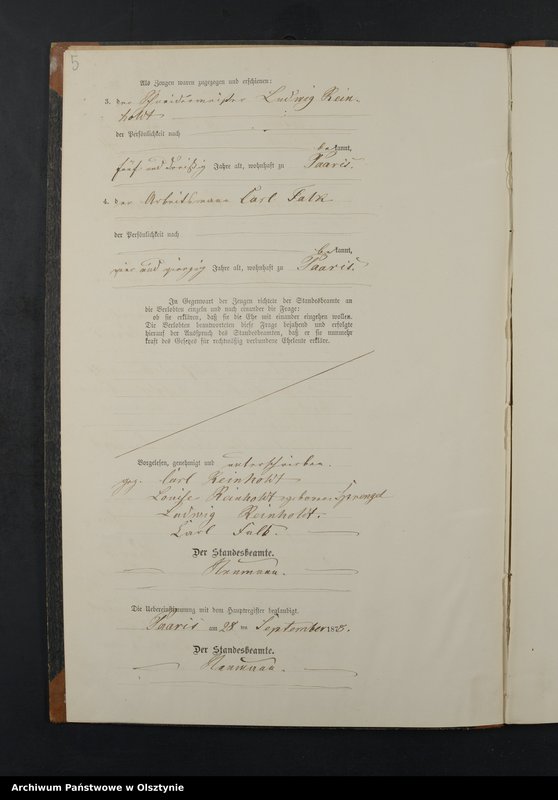 5
Als Zeugen waren zugezogen und erschienen:
3. der Schneidermeister Ludwig Rein-
holdt
der Persönlichkeit nach
bekannt,
fünf und dreißig Jahre alt, wohnhaft zu Paaris.
4. der Arbeitsmann Carl Falk
der Persönlichkeit nach
bekannt,
vier und vierzig Jahre alt, wohnhaft zu Paaris.
In Gegenwart der Zeugen richtete der Standesbeamte an
die Verlobten einzeln und nach einander die Frage:
ob sie erklären, daß sie die Ehe mit einander eingehen wollen.
Die Verlobten beantworteten diese Frage bejahend und erfolgte
hierauf der Ausspruch des Standesbeamten, daß er sie nunmehr
kraft des Gesetzes für rechtmäßig verbundene Eheleute erkläre.
Vorgelesen, genehmigt und unterschrieben.
gez. Carl Reinholdt
Louise Reinholdt geborene Sprengel
Ludwig Reinholdt.
Carl Falk.
Der Standesbeamte.
Naumann.
Die Uebereinstimmung mit dem Hauptregister beglaubigt.
Paaris am 28 ten September 1878.
Der Standesbeamte.
Naumann.
Archiwum Państwowe w Olsztynie